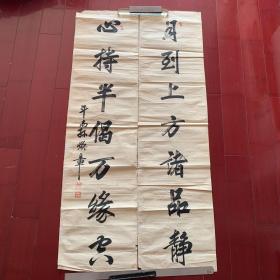 月到上方諸品靜
心持半偈万缘空